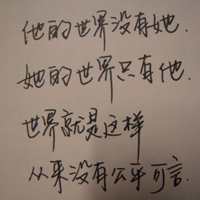 他的世界没有她.
她的世界只有他.
世界就是这样
从来没有公平可言.